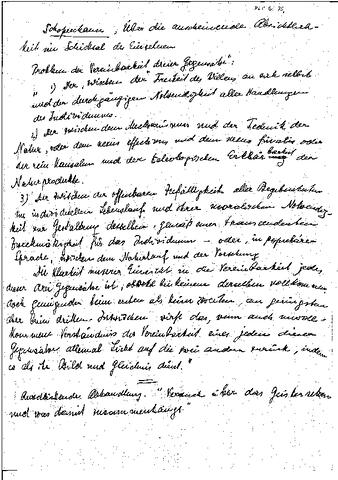 Schopenhauer, Über die anscheinende Absichtlich-
keit im Schicksal des Einzelnen
Problem der Vereinbarkeit dreier Gegensätze:
" 1) Der, zwischen der Freiheit des Willens an sich selbst
und der durchgängigen Notwendigkeit aller Handlungen
des Individuums.
2) der zwischen dem Mechanismus und der Technik der
Natur, oder dem nexus effectivus und dem nexus finalis oder
der rein kausalen und der teleologischen Erklärbarkeit der
Naturprodukte.
3) Der zwischen der offenbaren Zufälligkeit aller Begebenheiten
im individuellen Lebenslauf und ihrer moralischen Notwendig-
keit zur Gestaltung desselben, gemäß einer transcendenten
Zweckmäßigkeit für das Individuum – oder, in populärer
Sprache, zwischen dem Naturlauf und der Vorsehung
Die Klarheit unserer Einsicht in die Vereinbarkeit jedes
dieser drei Gegensätze ist, obwohl bei keinem derselben vollkommen,
doch genügender beim ersten als beim zweiten, am geringsten
aber beim dritten. Inzwischen wirft das, wenn auch unvoll-
kommene Verständnis der Vereinbarkeit eines jeden dieser
Gegensätze allemal Licht auf die zwei andern zurück, indem
es als ihr Bild und Gleichnis dient."
Abhandlung. "Versuch über das Geistersehen
und was damit zusammenhängt"